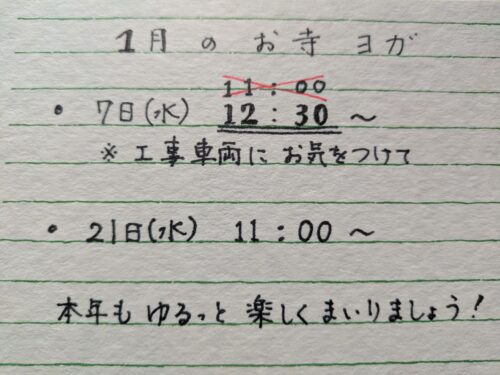 1月のお寺ヨガ
11:00
・7日(水) 12:30～
※工事車両にお気をつけて
・21日(水) 11:00～
本年もゆるっと楽しくまいりましょう!